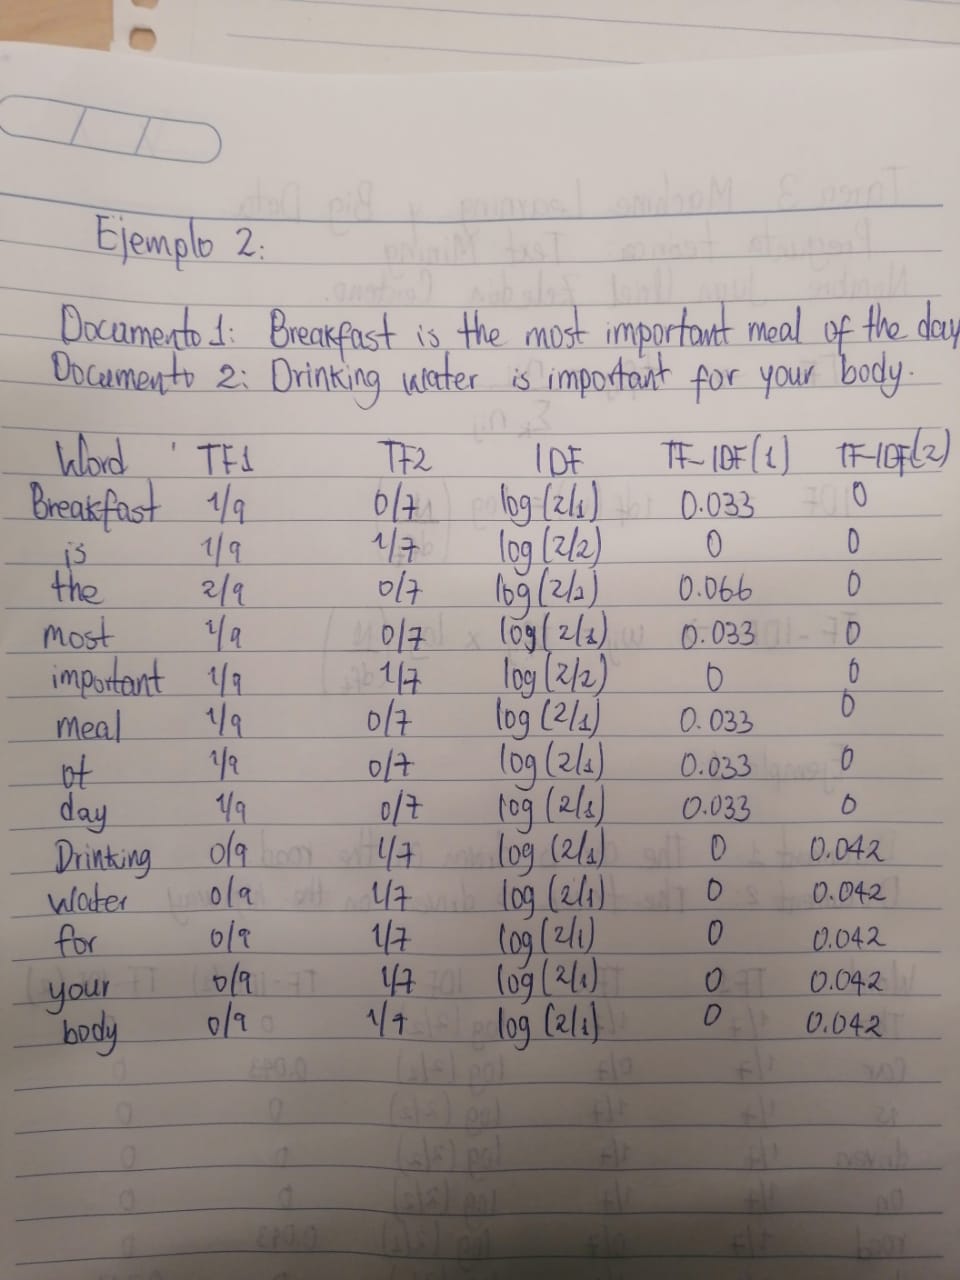 Ejemplo 2:
Documento 1: Breakfast is the most important meal of the day
Documento 2: Drinking water is important for your body.
Word TF1 TF2 IDF TF-IDF(1) TF-IDF(2)
Breakfast 1/9 0/7 log(2/1) 0.033 0
is 1/9 1/7 log(2/2) 0 0
the 2/9 0/7 log(2/1) 0.066 0
most 1/9 0/7 log(2/1) 0.033 0
important 1/9 1/7 log(2/2) 0 0
meal 1/9 0/7 log(2/1) 0.033 0
of 1/9 0/7 log(2/1) 0.033 0
day 1/9 0/7 log(2/1) 0.033 0
Drinking 0/9 1/7 log(2/1) 0 0.042
water 0/9 1/7 log(2/1) 0 0.042
for 0/9 1/7 log(2/1) 0 0.042
your 0/9 1/7 log(2/1) 0 0.042
body 0/9 1/7 log(2/1) 0 0.042